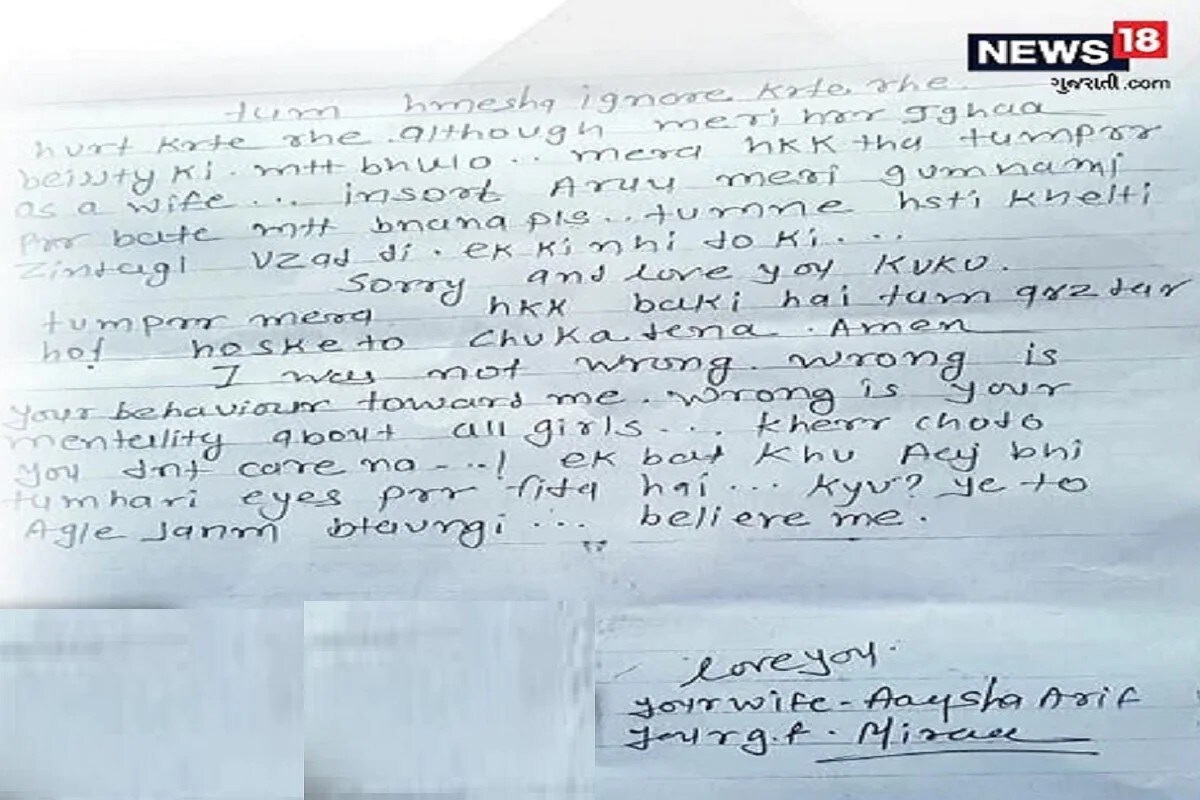 NEWS 18
ગુજરાતી.com
tum hmesha ignore krte rhe.
hurt krte rhe. although meri hrr Jghaa
beissty ki. mtt bhulo.. mera hkk tha tumprr
as a wife... insort Aruu meri gumnami
prr bate mtt bnana pls.. tumne hsti khelti
zindagi uzad di. ek ki nhi do ki...
Sorry and love you Kuku.
tumprr mera hkk baki hai tum qrzdar
ho! hoske to chuka dena. Amen
I was not wrong. wrong is
your behaviour toward me. wrong is your
mentality about all girls... kherr chodo
you dnt care na...! ek bat khu Aaj bhi
tumhari eyes prr fida hai... kyu? ye to
Agle Janm btaungi... believe me.
love you.
your wife - Aaysha Arif
your g.f.